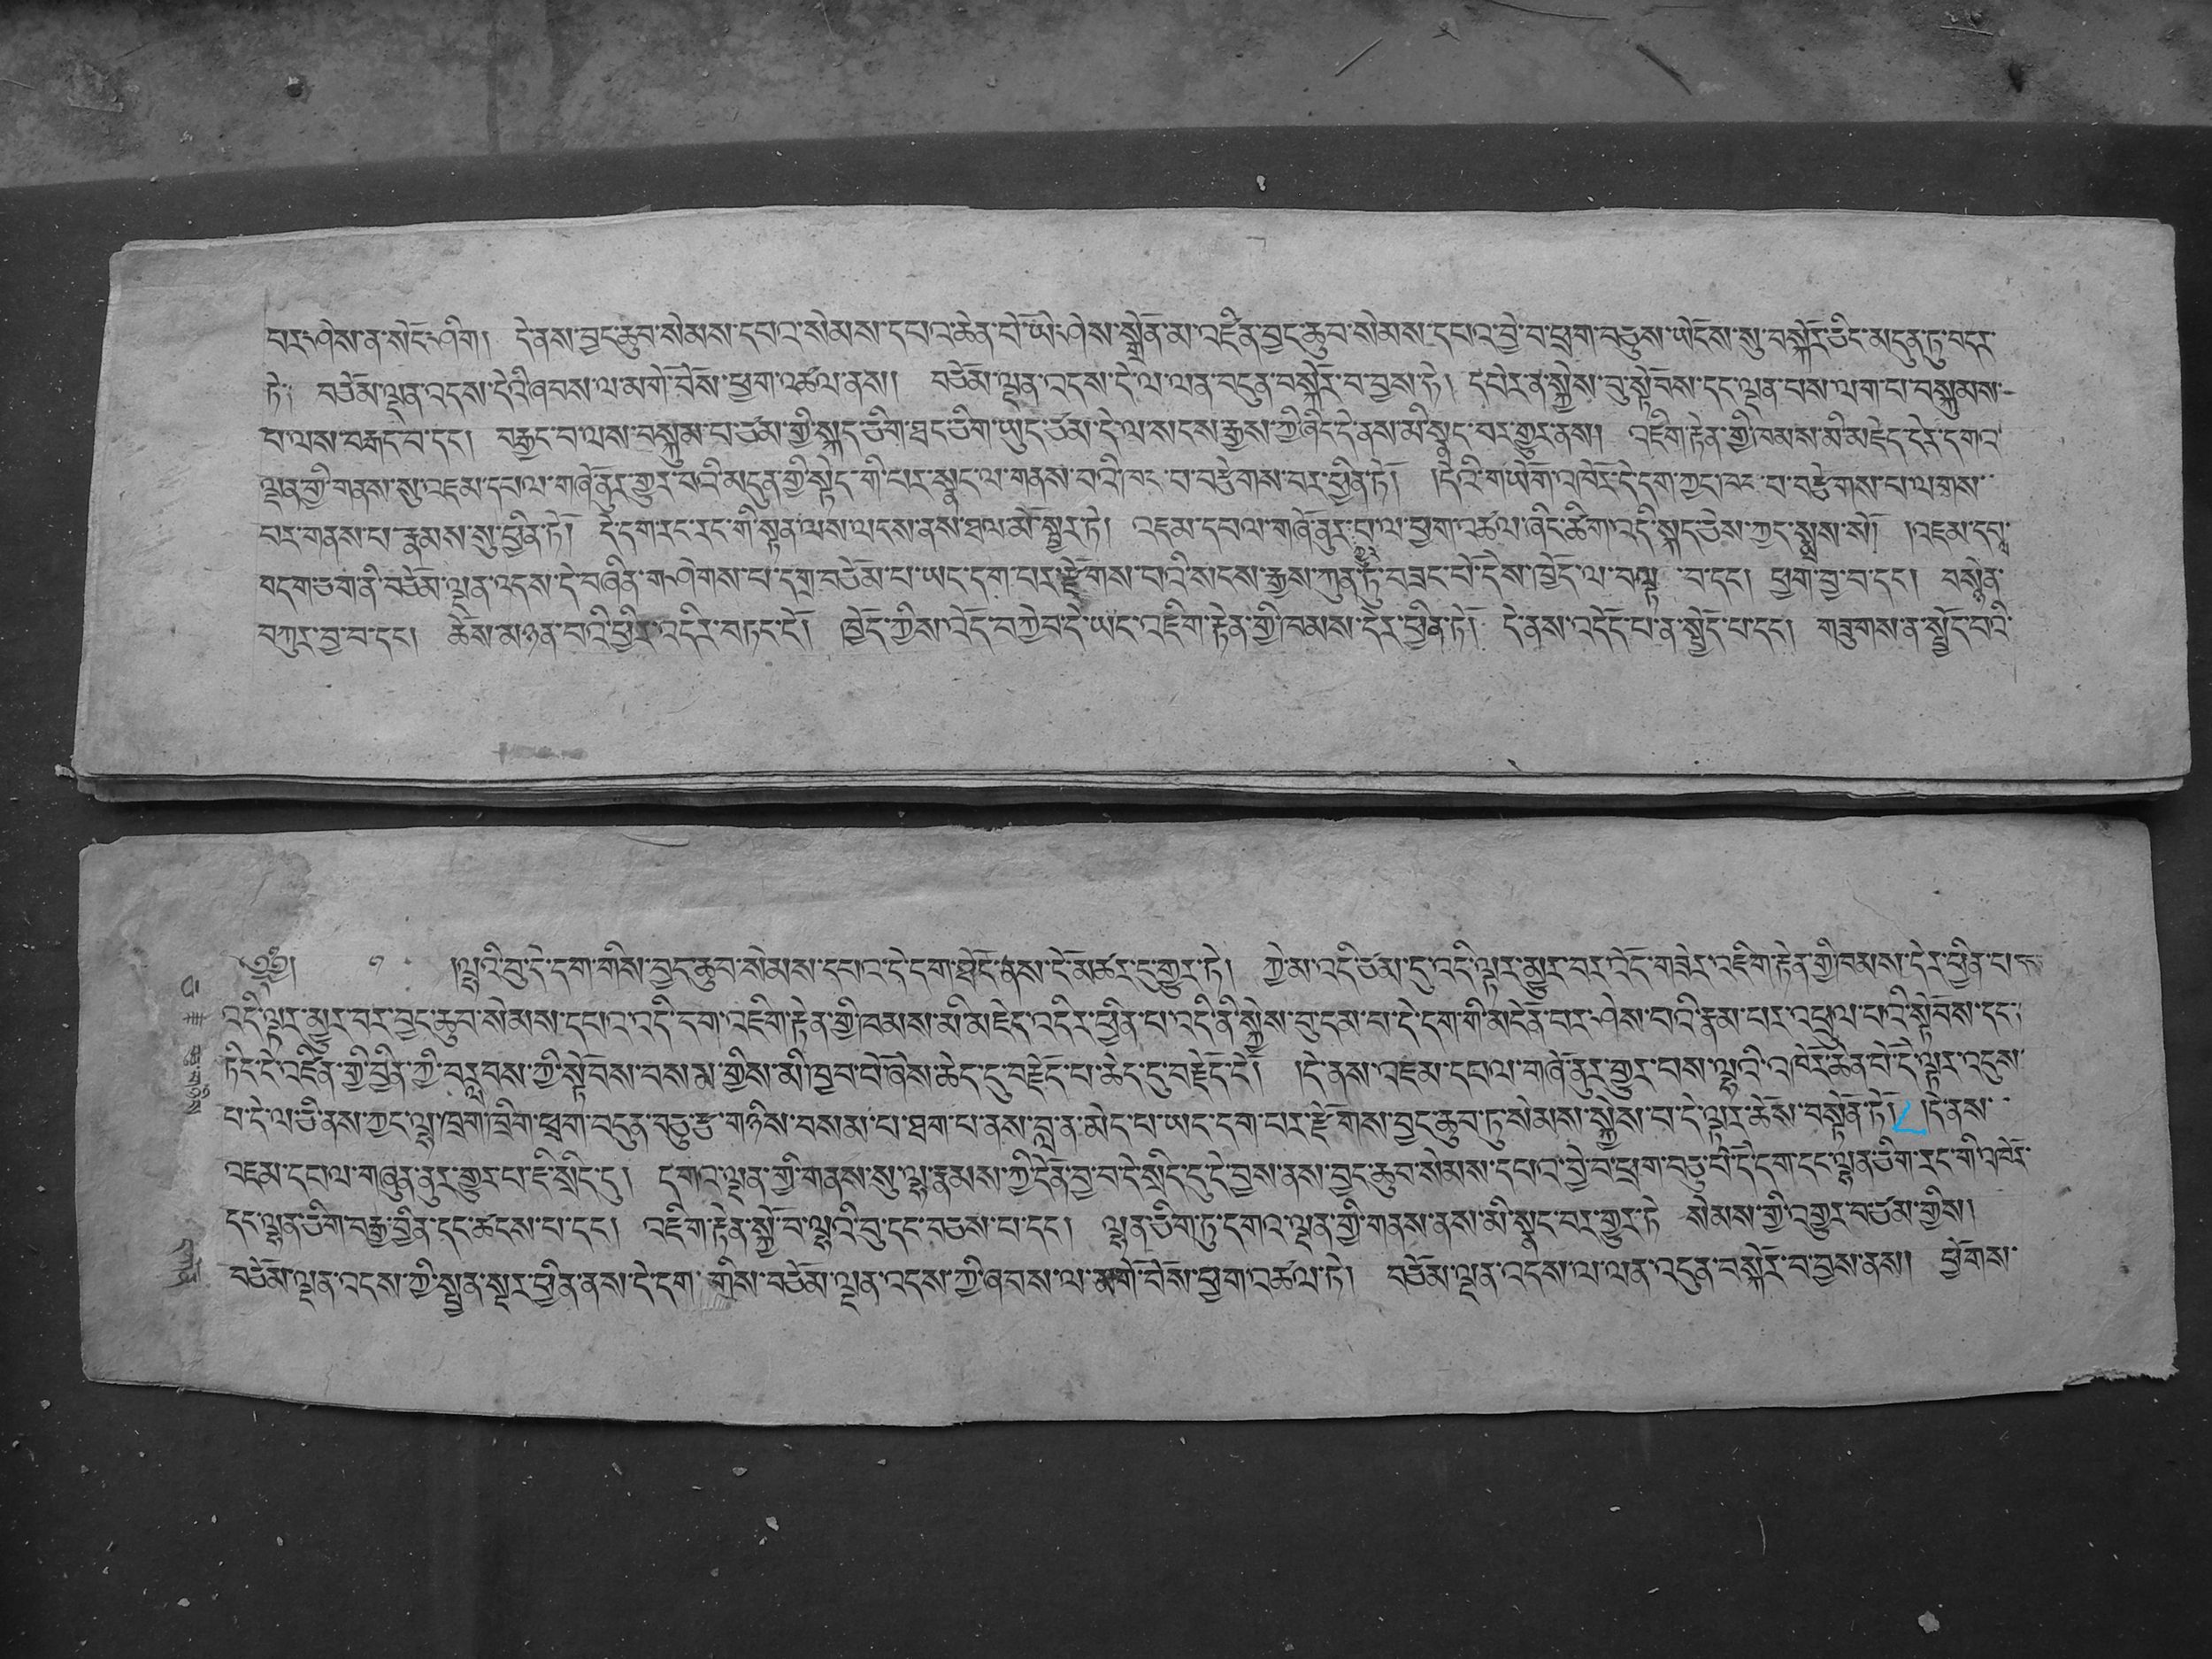 པར་ཤེས་ན་སེང་ཤིག། དེ་ནས་བྱང་ཆུབ་སེམས་དཔའ་སེམས་དཔའ་ཆེན་པོ་ཡེ་ཤེས་སྒྲོན་མ་འཛིན་བྱང་ཆུབ་སེམས་དཔའ་བྱེ་བ་ཕྲག་བཅུས་ཡོངས་སུ་བསྐོར་ཅིང་མདུན་ཏུ་བདར་
ཏེ། བཅོམ་ལྡན་འདས་དེའི་ཞབས་ལ་མགོ་བོས་ཕྱག་འཚལ་ནས། བཅོམ་ལྡན་འདས་དེ་ལ་ལན་བདུན་བསྐོར་བ་བྱས་ཏེ། དཔེར་ན་སྐྱེས་བུ་སྟོབས་དང་ལྡན་པས་ལག་པ་བསྐུམས་
པ་ལས་བརྐྱང་བ་དང། བརྐྱང་བ་ལས་བསྐུམ་པ་ཙམ་གྱི་སྐད་ཅིག་ཐང་ཅིག་ཡུད་ཙམ་དེ་ལ་སངས་རྒྱས་ཀྱི་ཞིང་དེ་ནས་མི་སྣང་བར་གྱུར་ནས། འཇིག་རྟེན་གྱི་ཁམས་མི་མཇེད་དེར་དགའ་
ལྡན་གྱི་གནས་སུ་འཇམ་དཔལ་གཞོ་ནུར་གྱུར་པའི་མདུན་གྱི་སྟེང་གི་བར་སྣང་ལ་གནས་བའི་ཁང་པ་བརྩེགས་བར་ཕྱིན་ཏེ། །དེའི་གཡོག་འཁོར་དེ་དག་ཀྱང་ཁང་པ་བརྩེགས་པ་ལགས་
པར་གནས་པ་རྣམས་སུ་ཕྱིན་ཏོ། དེ་དག་རང་རང་གི་སྟན་ལས་ལངས་ནས་ཐལ་མོ་སྦྱར་ཏེ། འཇམ་དཔལ་གཞོ་ནུར་ལ་ཕྱག་འཚལ་ཞིང་ཚིག་འདི་སྐད་ཅེས་ཀྱང་སྨྲས་སོ། །འཇམ་དཔལ་
བདག་ཅག་ནི་བཅོམ་ལྡན་འདས་དེ་བཞིན་གཤེགས་པ་དགྲ་བཅོམ་པ་ཡང་དག་པར་རྫོགས་པའི་སངས་རྒྱས་ཀུན་ཏུ་བཟང་པོ་དེས་ཁྱོད་ལ་བལྟ་བ་དང། ཕྱག་བྱ་བ་དང། བསྙེན་
བཀུར་བྱ་བ་དང། ཆོས་མཉན་བའི་ཕྱིར་འདིར་བཏང་ངོ། །ཁྱོད་ཀྱིས་འོད་བཀྱེ་བ་དེ་ཡང་འཇིག་རྟེན་གྱི་ཁམས་དེར་ཕྱིན་ཏོ། དེ་ནས་འདོད་པ་ན་སྤྱོད་པ་དང། གཟུགས་ན་སྤྱོད་པའི་
༄༅། །ལྷའི་བུ་དེ་དག་གིས་བྱང་ཆུབ་སེམས་དཔའ་དེ་དག་མཐོང་ནས་ངོ་མཚར་དུ་གྱུར་ཏེ། ཀྱེ་མ་འདི་ཙམ་དུ་འདི་ལྟར་མྱུར་བར་འོད་གཟེར་འཇིག་རྟེན་གྱི་ཁམས་དེར་ཕྱིན་པ་
འདི་ལྟར་མྱུར་བར་བྱང་ཆུབ་སེམས་དཔའ་འདི་དག་འཇིག་རྟེན་གྱི་ཁམས་མི་མཇེད་འདིར་ཕྱིན་པ་འདི་ནི་སྐྱེས་བུ་དམ་པ་དེ་དག་གི་མངོན་བར་ཤེས་བའི་རྣམ་པར་འཕྲུལ་པའི་སྟོབས་དང་
ཏིང་ངེ་འཛིན་གྱི་བྱིན་ཀྱི་བརླབས་ཀྱི་སྟོབས་བསམ་གྱིས་མི་ཁྱབ་པོ་ཞེས་ཆེད་དུ་བརྗོད་པ་ཆེད་དུ་བརྗོད་དོ། །དེ་ནས་འཇམ་དཔལ་གཞོ་ནུར་གྱུར་པས་ལྷའི་འཁོར་ཆེན་པོ་དེ་ལྟར་འདུས་
པ་དེ་ལ་ཅི་ནས་ཀྱང་ལྷ་ཁྲག་ཁྲིག་ཕྲག་བདུན་བཅུ་རྩ་གཉིས་བསམ་པ་ཐག་པ་ནས་བླ་ན་མེད་པ་ཡང་དག་པར་རྫོགས་བྱང་ཆུབ་ཏུ་སེམས་སྐྱེས་པ་དེ་ལྟར་ཆོས་བསྟོན་ཏོ། །དེ་ནས་
འཇམ་དཔལ་གཞུན་ནུར་གྱུར་པ་ཇི་སྲིད་དུ། དགའ་ལྡན་གྱི་གནས་སུ་ལྷ་རྣམས་ཀྱི་དོན་བྱ་བ་དེ་སྲིད་དུ་དེ་བྱས་ནས་བྱང་ཆུབ་སེམས་དཔའ་བྱེ་བ་ཕྲག་བཅུ་པོ་དེ་དག་དང་ལྷན་ཅིག་རང་གི་འཁོར་
དང་ལྷན་ཅིག་བརྒྱ་བྱིན་དང་ཚངས་པ་དང། འཇིག་རྟེན་སྐྱོ་བ་ལྷའི་བུ་དང་བཅས་པ་དང། ལྷན་ཅིག་ཏུ་དགའ་ལྡན་གྱི་གནས་ནས་མི་སྣང་བར་གྱུར་ཏེ སེམས་གྱི་འགྱུར་བ་ཙམ་གྱིས།
བཅོམ་ལྡན་འདས་ཀྱི་སྤྱན་སྔར་ཕྱིན་ནས་དེ་དག་གིས་བཅོམ་ལྡན་འདས་ཀྱི་ཞབས་ལ་མགོ་བོས་ཕྱག་འཚལ་ཏེ། བཅོམ་ལྡན་འདས་ལ་ལན་འདུན་བསྐོར་བ་བྱས་ནས། ཕྱོགས་